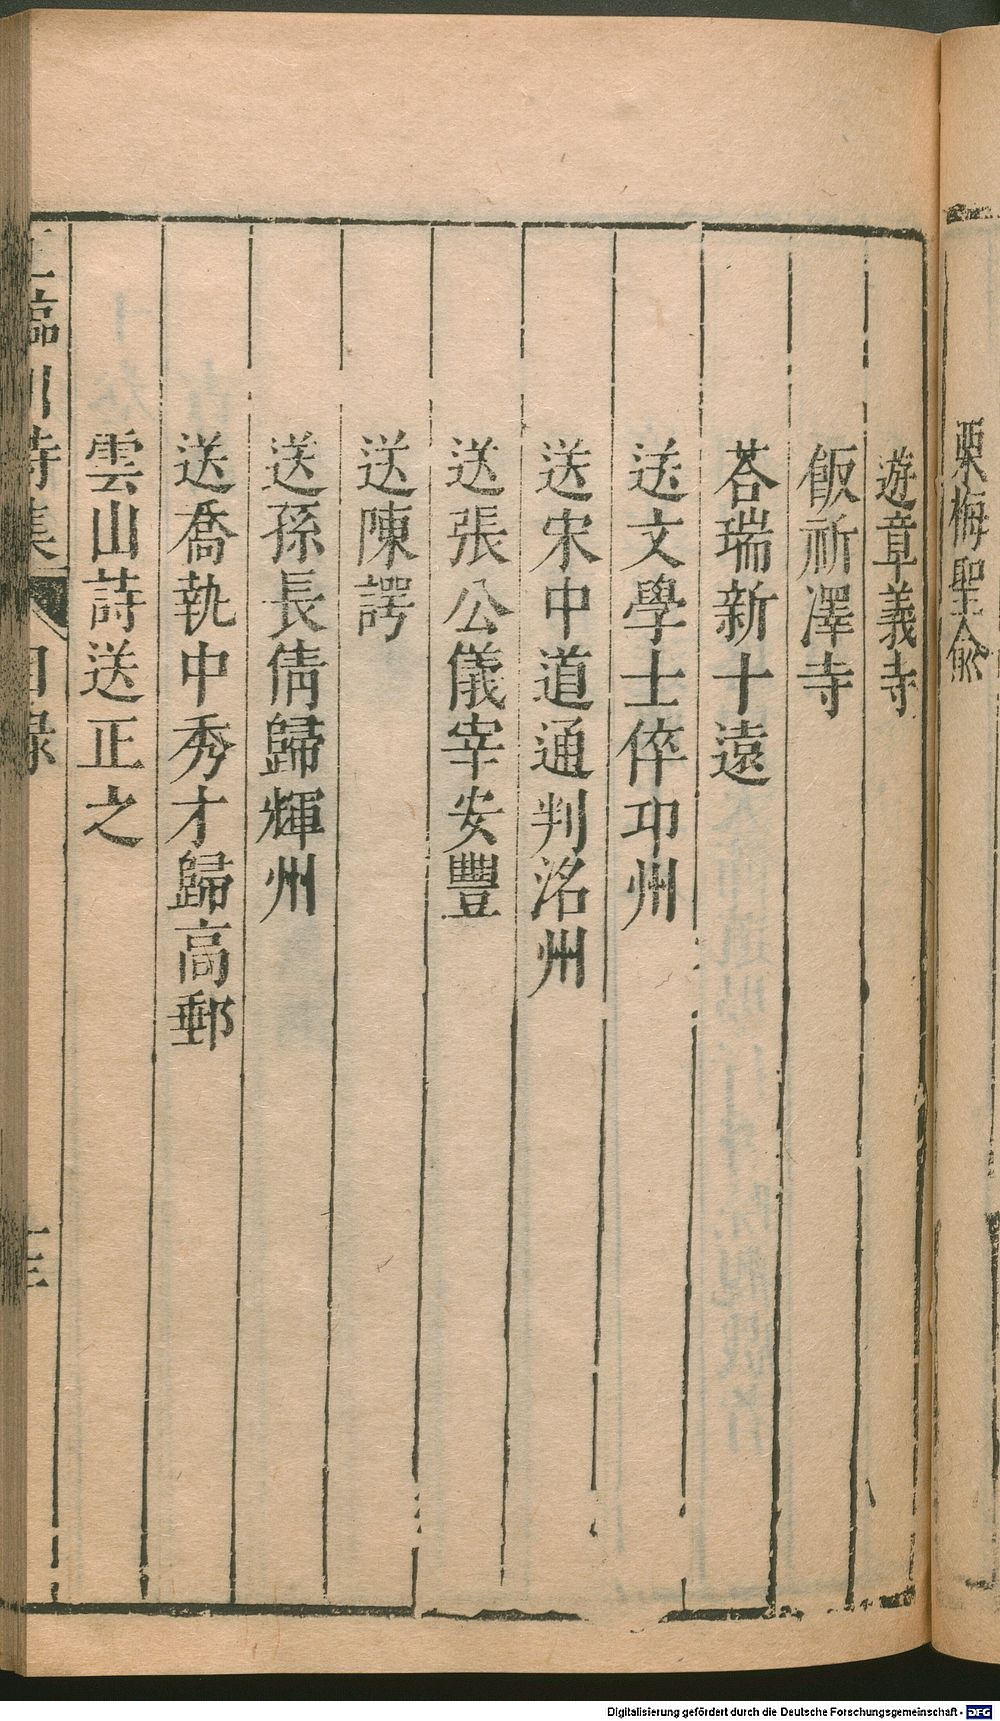 栗梅聖俞
遊章義寺
飯祈澤寺
荅瑞新十遠
送文學士倅卭州
送宋中道通判洺州
送張公儀宰安豐
送陳諤
送孫長倩歸輝州
送喬執中秀才歸高郵
雲山詩送正之
王臨川詩集 目錄
Digitalisierung gefördert durch die Deutsche Forschungsgemeinschaft - DFG